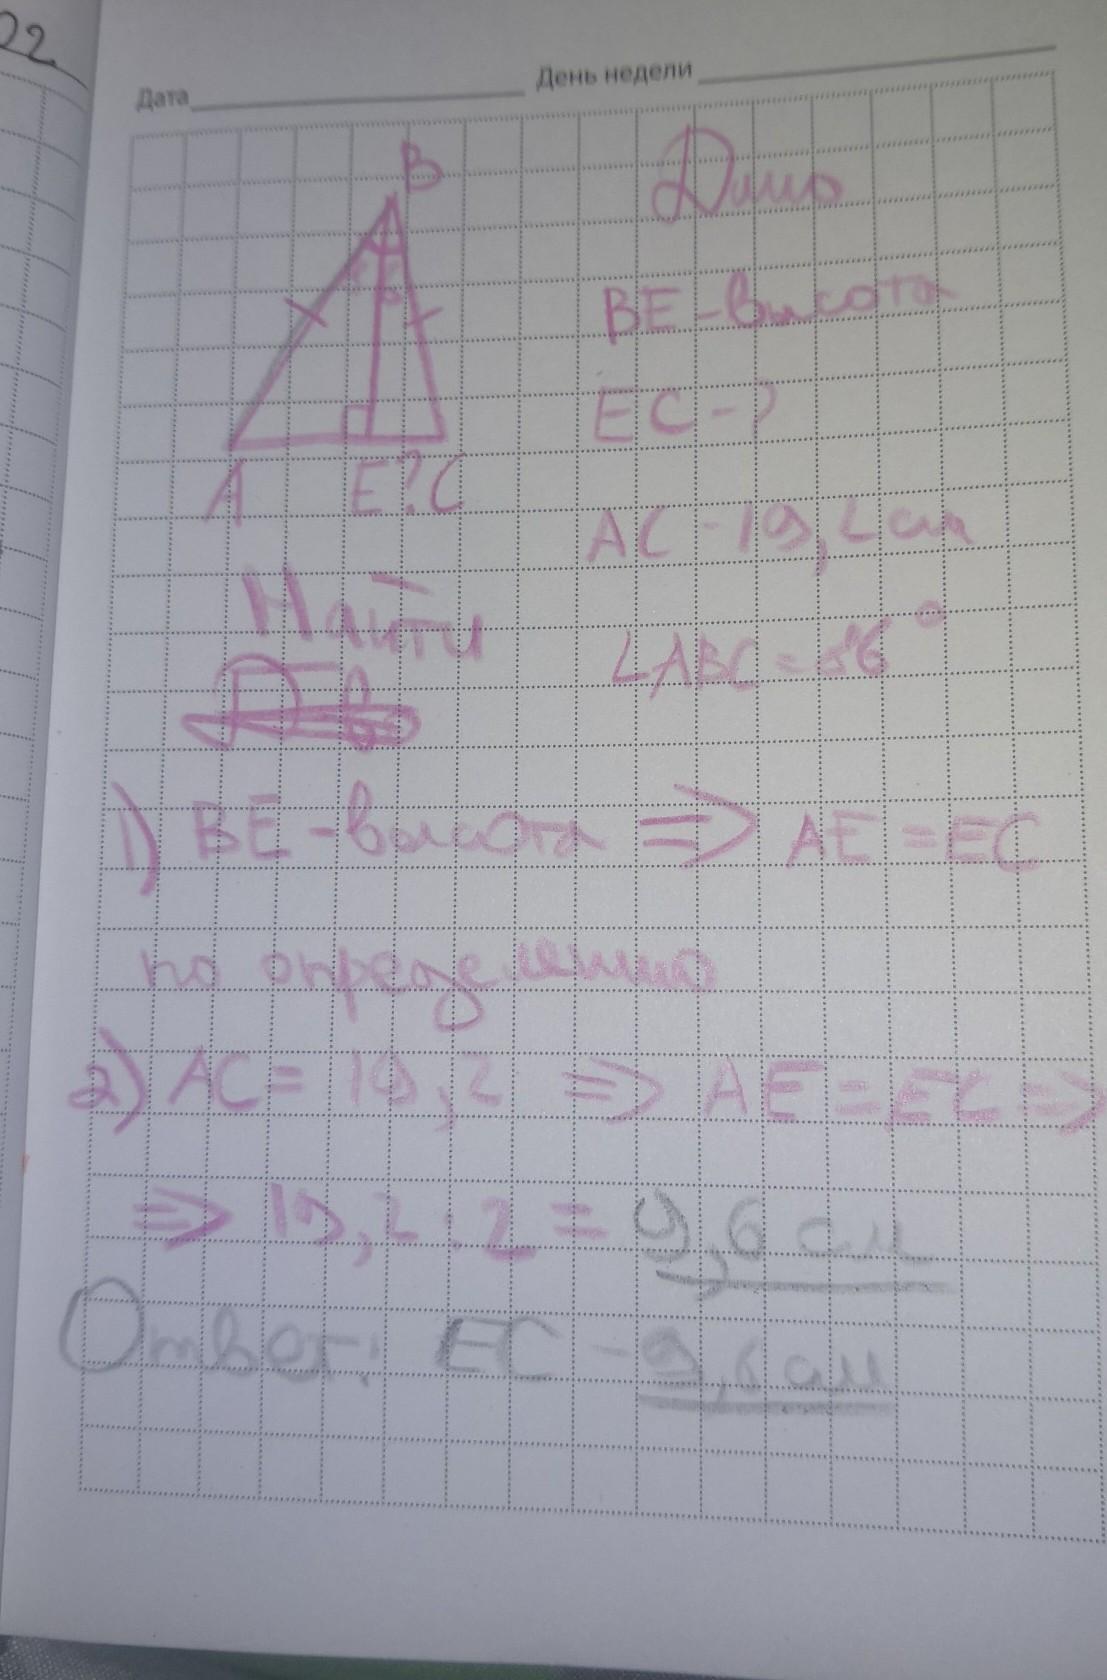 02
Дата День недели
B
Дано
BE - высота
EC - ?
A E ? C
AC - 19,2 см
Найти
∠ABC = 86°
1) BE - высота ⇒ AE = EC
по определению
2) AC = 19,2 ⇒ AE = EC ⇒
⇒ 19,2 : 2 = 9,6 см
Ответ: EC - 9,6 см